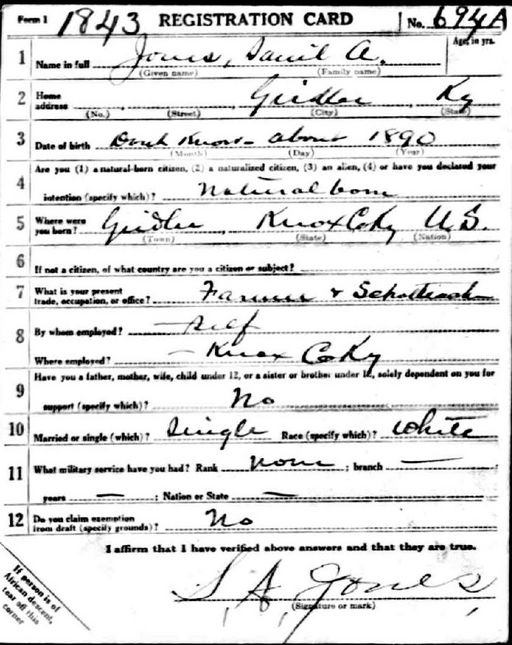 Form 1 1843 REGISTRATION CARD No. 694A
Age, in yrs.
1 Name in full Jones, A.
(Given name) (Family name)
2 Home address Girdler Ky
(No.) (Street) (City) (State)
3 Date of birth Dont Know - about 1890
(Month) (Day) (Year)
Are you (1) a natural-born citizen, (2) a naturalized citizen, (3) an alien, (4) or have you declared your
4 intention (specify which)? Natural born
5 Where were you born? Girdler Knox Co Ky U.S.
(Town) (State) (Nation)
6 If not a citizen, of what country are you a citizen or subject?
7 What is your present trade, occupation, or office? Farmer &
8 By whom employed? — self
Where employed? — Knox Co Ky
9 Have you a father, mother, wife, child under 12, or a sister or brother under 12, solely dependent on you for
support (specify which)? No
10 Married or single (which)? Single Race (specify which)? White
11 What military service have you had? Rank none ; branch —
years — ; Nation or State —
12 Do you claim exemption from draft (specify grounds)? No
I affirm that I have verified above answers and that they are true.
S. A. Jones
(Signature or mark)
If person is of
African descent,
tear off this
corner